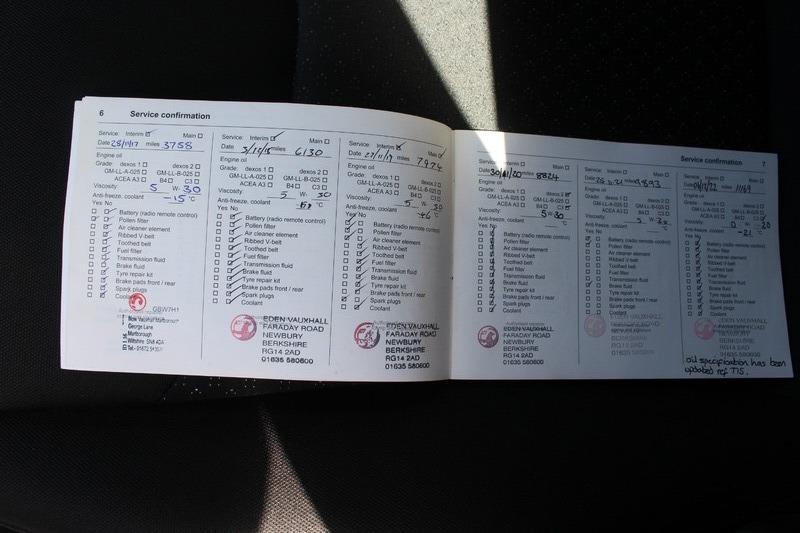 6 Service confirmation
Service: Interim Main
Date 28/11/17 miles 3758
Engine oil
Grade: dexos 1 dexos 2
GM-LL-A-025 GM-LL-B-025
ACEA A3 B4 C3
Viscosity: 5 W- 30
Anti-freeze, coolant -15 °C
Yes No
Battery (radio remote control)
Pollen filter
Air cleaner element
Ribbed V-belt
Toothed belt
Fuel filter
Transmission fluid
Brake fluid
Tyre repair kit
Brake pads front / rear
Spark plugs
Coolant
GBW7H1
George Lane
Marlborough
Wiltshire SN8 4DA
Service: Interim Main
Date miles 6130
Engine oil
Grade: dexos 1 dexos 2
GM-LL-A-025 GM-LL-B-025
ACEA A3 B4 C3
Viscosity: 5 W- 30
Anti-freeze, coolant °C
Yes No
Battery (radio remote control)
Pollen filter
Air cleaner element
Ribbed V-belt
Toothed belt
Fuel filter
Transmission fluid
Brake fluid
Tyre repair kit
Brake pads front / rear
Spark plugs
Coolant
EDEN VAUXHALL
FARADAY ROAD
NEWBURY
BERKSHIRE
RG14 2AD
01635 580600
Service: Interim Main
Date miles 7924
Engine oil
Grade: dexos 1 dexos 2
GM-LL-A-025 GM-LL-B-025
ACEA A3 B4 C3
Viscosity: 5 W- 30
Anti-freeze, coolant °C
Yes No
Battery (radio remote control)
Pollen filter
Air cleaner element
Ribbed V-belt
Toothed belt
Fuel filter
Transmission fluid
Brake fluid
Tyre repair kit
Brake pads front / rear
Spark plugs
Coolant
EDEN VAUXHALL
FARADAY ROAD
NEWBURY
BERKSHIRE
RG14 2AD
01635 580600
Service confirmation 7
Service: Interim Main
Date 30/11/20 miles 8824
Engine oil
Grade: dexos 1 dexos 2
GM-LL-A-025 GM-LL-B-025
ACEA A3 B4 C3
Viscosity: 5 W- 30
Anti-freeze, coolant °C
Yes No
Battery (radio remote control)
Pollen filter
Air cleaner element
Ribbed V-belt
Toothed belt
Fuel filter
Transmission fluid
Brake fluid
Tyre repair kit
Brake pads front / rear
Spark plugs
Coolant
EDEN VAUXHALL
FARADAY ROAD
NEWBURY
BERKSHIRE
RG14 2AD
01635 580600
Service: Interim Main
Date miles 9893
Engine oil
Grade: dexos 1 dexos 2
GM-LL-A-025 GM-LL-B-025
ACEA A3 B4 C3
Viscosity: 5 W- 30
Anti-freeze, coolant °C
Yes No
Battery (radio remote control)
Pollen filter
Air cleaner element
Ribbed V-belt
Toothed belt
Fuel filter
Transmission fluid
Brake fluid
Tyre repair kit
Brake pads front / rear
Spark plugs
Coolant
EDEN VAUXHALL
FARADAY ROAD
NEWBURY
BERKSHIRE
RG14 2AD
01635 580600
Service: Interim Main
Date miles
Engine oil
Grade: dexos 1 dexos 2
GM-LL-A-025 GM-LL-B-025
ACEA A3 B4 C3
Viscosity: 0 W- 20
Anti-freeze, coolant -21 °C
Yes No
Battery (radio remote control)
Pollen filter
Air cleaner element
Ribbed V-belt
Toothed belt
Fuel filter
Transmission fluid
Brake fluid
Tyre repair kit
Brake pads front / rear
Spark plugs
Coolant
EDEN VAUXHALL
FARADAY ROAD
NEWBURY
BERKSHIRE
RG14 2AD
01635 580600
oil specification has been
updated ref TIS.